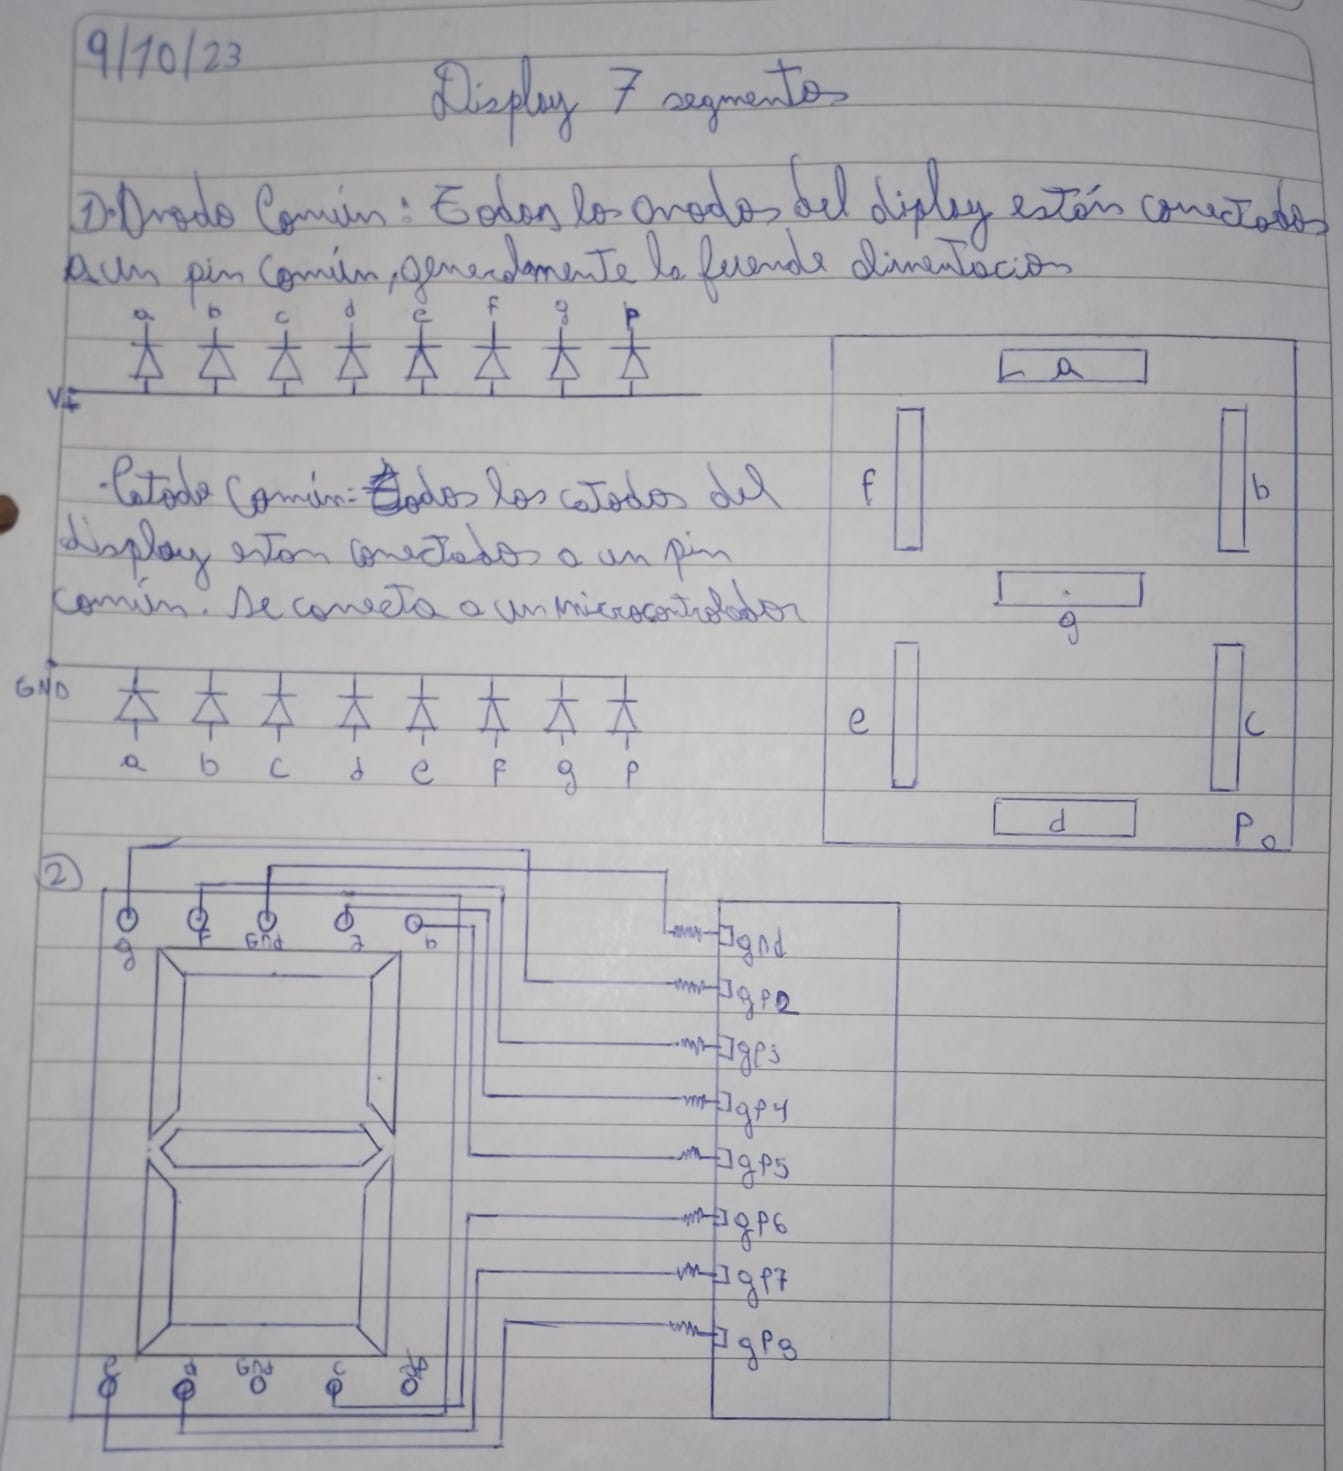 9/10/23
Display 7 segmentos
1) Anodo Común: Todos los anodos del diplay están conectados
a un pin común, generalmente la fuende alimentacion
a b c d e f g p
V
a
f
b
g
e
c
d
P
·Catodo Común: todos los catodos del
display estan conectados a un pin
común. Se conecta a un microcontrolador
GND
a b c d e f g p
2)
g f GND a b
gnd
gp2
gp3
gp4
gp5
gp6
gp7
gp8
e d GND c dp